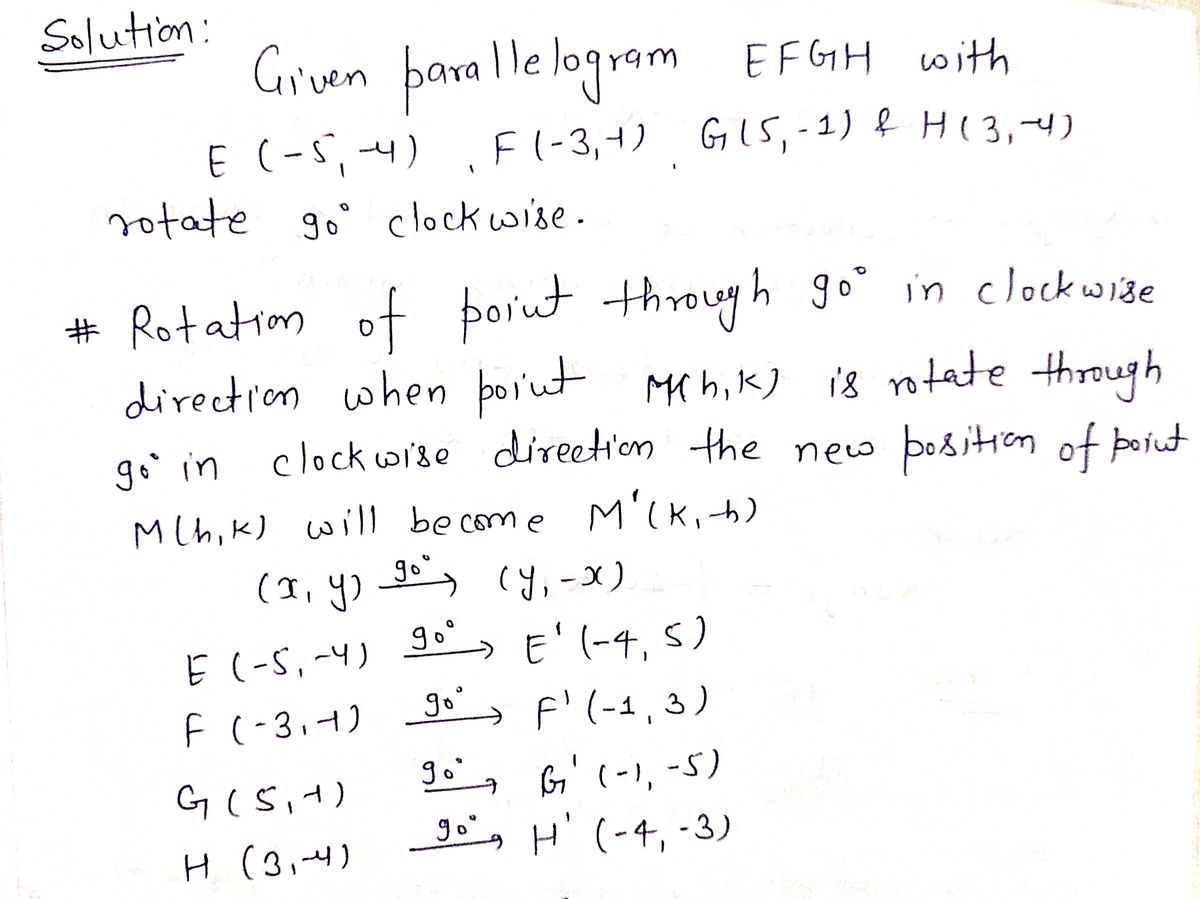 Solution:
Given parallelogram EFGH with
E (-5, -4) , F (-3, -1) , G (5, -1) & H (3, -4)
rotate 90° clockwise.
# Rotation of point through 90° in clockwise
direction when point M(h, k) is rotate through
90° in clockwise direction the new position of point
M(h, k) will become M'(k, -h)
(x, y) 90°→ (y, -x)
E (-5, -4) 90°→ E' (-4, 5)
F (-3, -1) 90°→ F' (-1, 3)
G (5, -1) 90°→ G' (-1, -5)
H (3, -4) 90°→ H' (-4, -3)